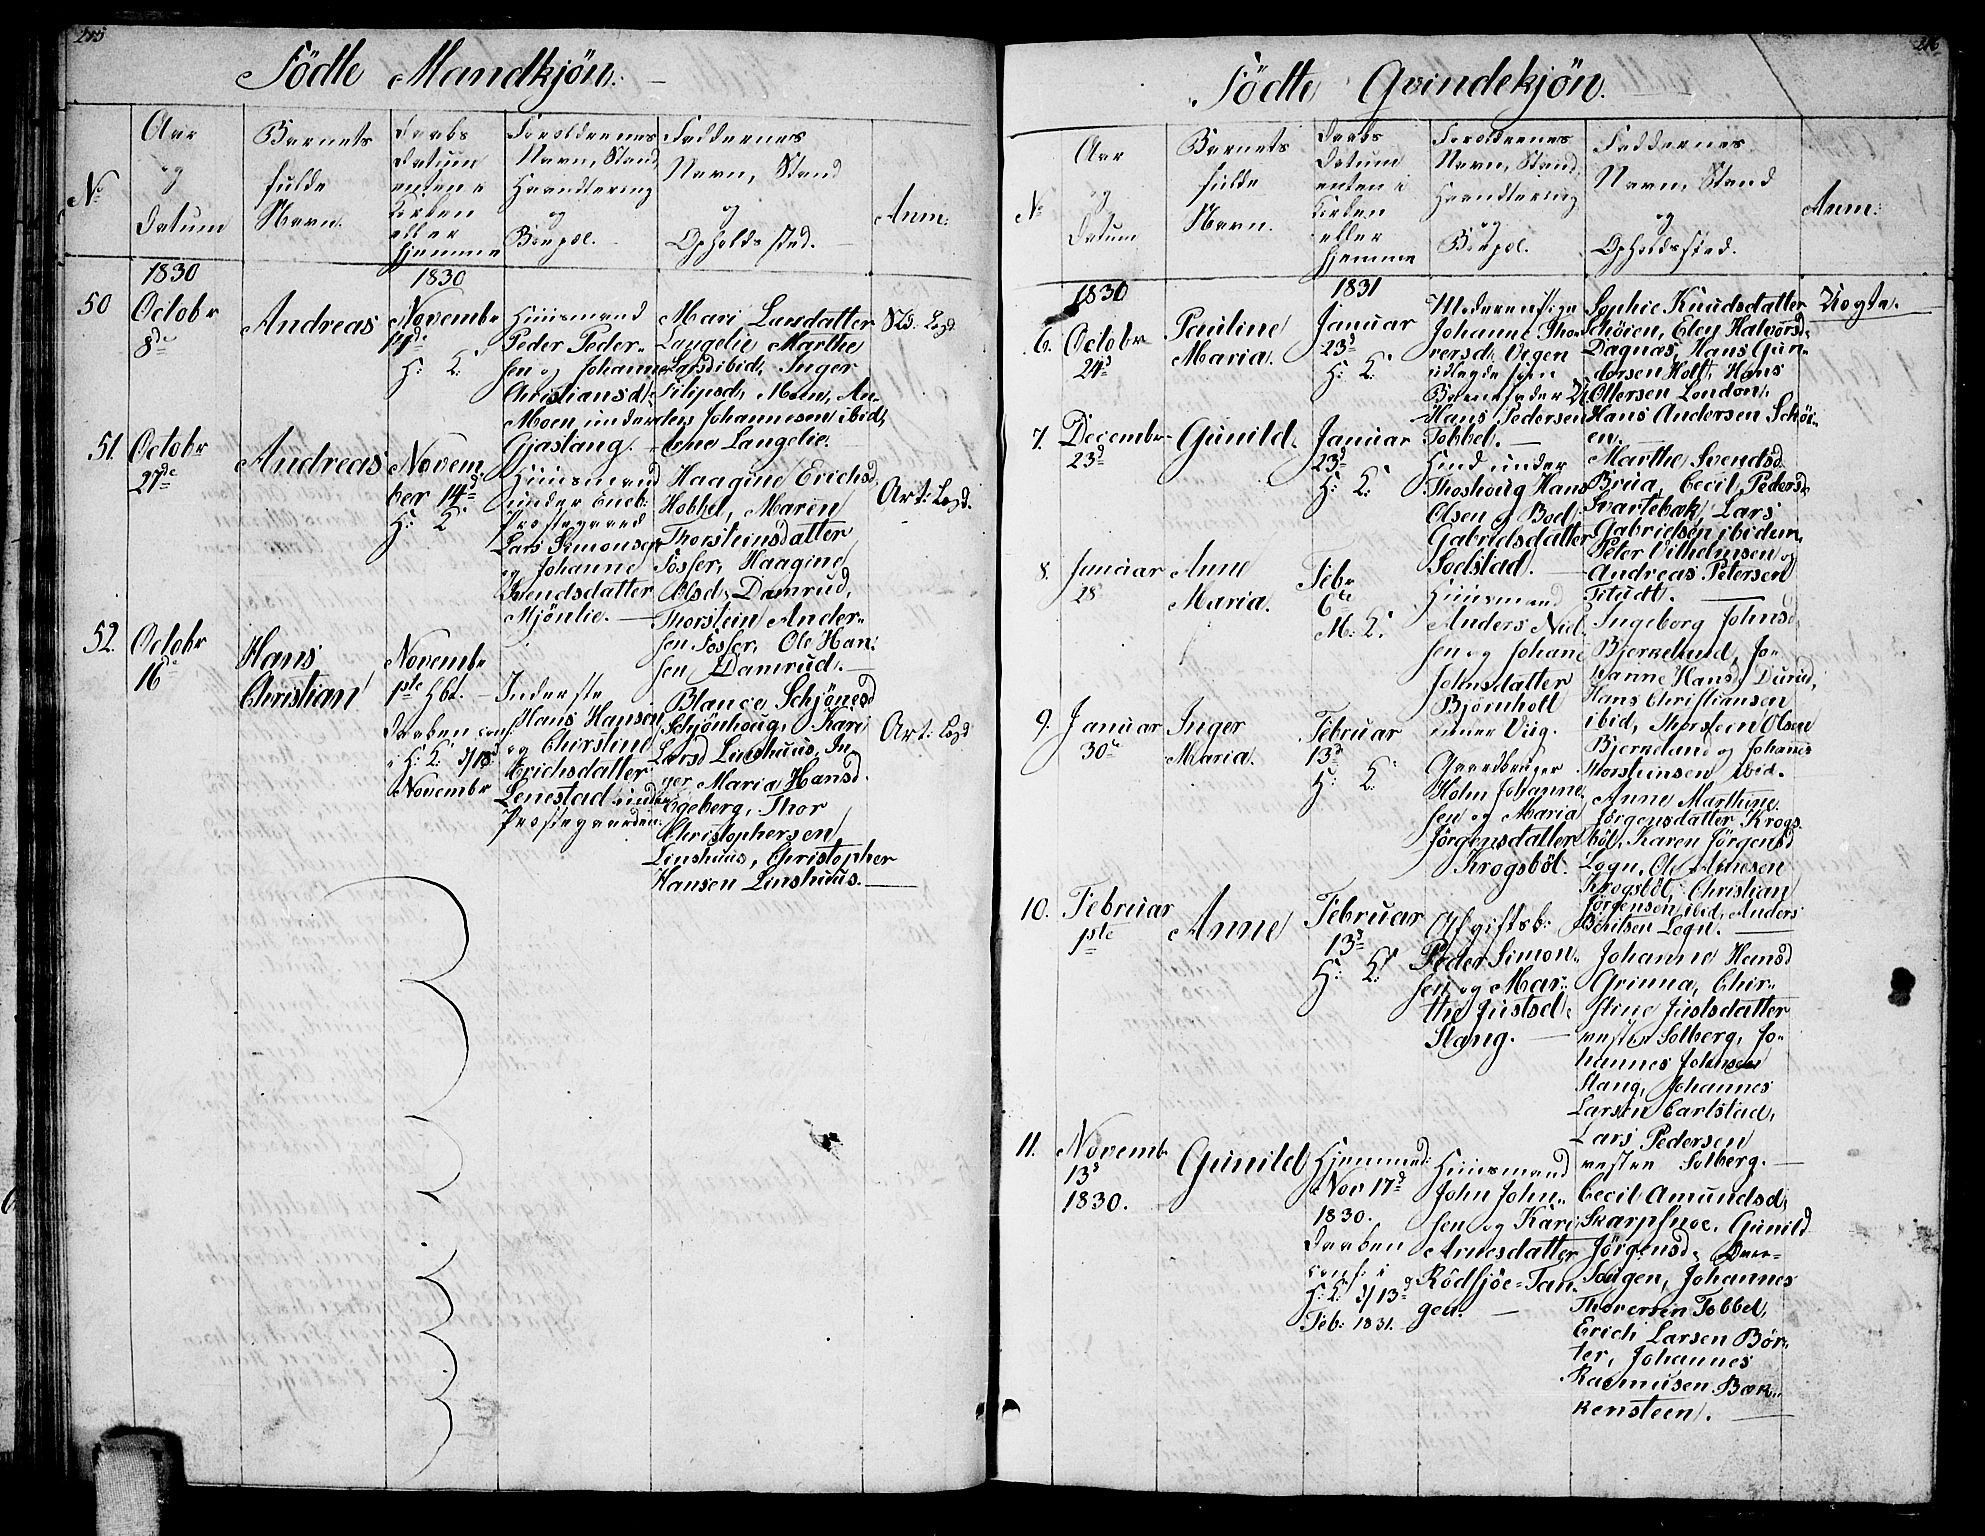 215
Födte Mandkjön.
No
Aar
og
Datum
Barnets
fulde
Navn.
Daabs
Datum
enten i
Kirken
eller
hjemme
Forældrenes
Navn, Stand
Haandtering
og
Boepæl.
Faddernes
Navn, Stand
og
Opholdssted.
Anm:
1830
1830
50
Octobr
8de
Andreas
Novembr
14de
H: K:
Huusmand
Peder Peder-
sen og Johanne
Christiansd:
Moen under
Gjaslang.
Mari Larsdatter
Langelie Marthe
Larsd ibid, Inger
Filipsd, Moen, An-
ders Johannesen ibid,
Arne Langelie.
Lægd
51.
Octobr
27de
Andreas
Novem
ber 14d
H: K:
Huusmand
under Eneb:
Præstegaard
Lars Simonsen
og Johanne
Svendsdatter
Mjönlie.
Haagine Erichsd,
Hobbel, Maren
Thorsteinsdatter
Fosser, Haagine
Olsd, Damrud,
Thorstein Ander-
sen Fosser, Ole Han-
sen Damrud.
Art: Lægd.
52.
Octobr
16de
Hans
Christian
Novembr
1ste Hbt.
Daaben conf.
i H: K: d/18
Novembr
Inderste
Hans Hansen
og Chirstine
Erichsdatter
Lenestad under
Præstegaarden.
Blance Schjönesd
Schjönhoug, Kari
Larsd Linshuus, In-
ger Maria Hansd.
Egeberg, Thor
Christophersen
Linshuus, Christopher
Hansen Linshuus.
Art: Lægd
216
Födte Qvindekjön.
No
Aar
og
Datum
Barnets
fulde
Navn.
Daabs
Datum
enten i
Kirken
eller
hjemme
Forældrenes
Navn, Stand,
Haandtering
og
Boepæl.
Faddernes
Navn, Stand
og
Opholdssted.
Anm:
1830
1831
6.
Octobr
24d
Pauline
Maria.
Januar
23d
H: K:
Johanne Thor-
versd: Vegen
udlagde som
Barnefader
Hans Pedersen
Tobbel.
Sophie Knudsdatter
Schöien, Eloy Halvorsd
Dagnæs, Hans Gun-
dersen Holt, Hans
Ottersen London,
Hans Andersen Schöi-
en.
Uægte.
7.
Decembr
23d
Gunild.
Januar
23d
H: K:
under
Thoshoug Hans
Olsen og Boel
Gabrielsdatter
Sodstad.
Marthe Svendsd
Brua, Cecil, Pedersd
Svartebæk, Lars
Gabrielsen ibidem,
Peter Vilhelmsen og
Andreas Petersen
Titudt.
8.
Januar
28
Anne
Maria.
Febr
6te
M: K:
Huusmand
Anders Niel-
sen og Johane
Johnsdatter
Björnholt
under Viig.
Ingeborg Johnsd,
Bjerkelund, Jo-
hanne Hansd, Durud,
Hans Christiansen
ibid, Thorsteen Olsen
Bjerkelund og Johanes
Thorsteinsen ibid.
9.
Januar
30te
Inger
Maria.
Februar
13d
H: K:
Gaardbruger
Holm Johanne-
sen og Maria
Jörgensdatter
Krogsböl.
Anne Marthine
Jörgensdatter Krogs-
böl, Karen Jörgensd
Logn, Ole Arnesen
Krogsböl, Christian
Jörgensen ibid, Anders
Bentsen Logn.
10.
Februar
1ste
Anne
Februar
13d
H: K:
Afgiftsb:
Peder Simon-
sen og Mar-
the Justsd:
Stang.
Johanne Hansd
Grinna, Chir-
stine Justsdatter
vestre Solberg, Jo-
hannes Johnsen
Stang, Johannes
Larsen Carlstad,
Lars Pedersen
vestre Solberg.
11.
Novemb.
13d
1830.
Gunild
Hjemmed:
Nov 17d
1830.
Daaben
conf: i
H: K: d/13d
Feb: 1831.
Huusmand
John John-
sen og Kari
Arnesdatter
Rödsjöe=Tan-
gen.
Cecil Amundsd,
Skarpsnoe, Gunild
Jörgensd:
Sougen, Johannes
Thoversen Tobbel,
Erich Larsen Bör-
ter, Johannes
Rasmusen Bæk-
kensteen.